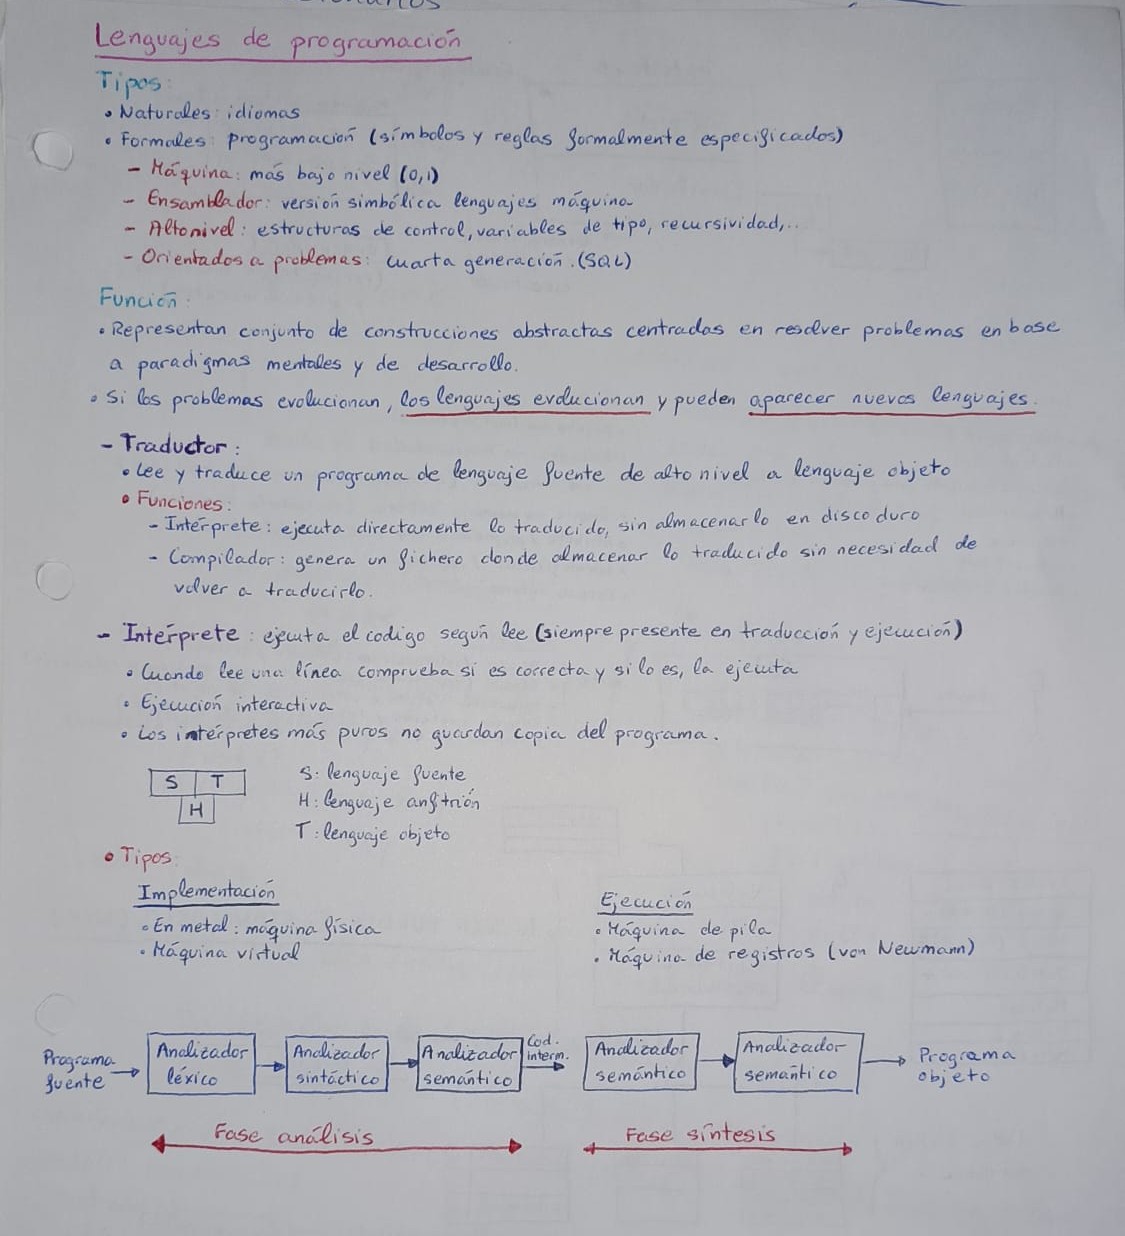 Lenguajes de programación
Tipos:
• Naturales: idiomas
• Formales: programación (símbolos y reglas formalmente especificados)
- Máquina: más bajo nivel (0,1)
- Ensamblador: versión simbólica lenguajes máquina
- Alto nivel: estructuras de control, variables de tipo, recursividad,...
- Orientados a problemas: cuarta generación. (SQL)
Función:
• Representan conjunto de construcciones abstractas centradas en resolver problemas en base
a paradigmas mentales y de desarrollo.
• Si los problemas evolucionan, los lenguajes evolucionan y pueden aparecer nuevos lenguajes.
- Traductor:
• Lee y traduce un programa de lenguaje fuente de alto nivel a lenguaje objeto
• Funciones:
- Intérprete: ejecuta directamente lo traducido, sin almacenarlo en disco duro
- Compilador: genera un fichero donde almacenar lo traducido sin necesidad de
volver a traducirlo.
- Intérprete: ejecuta el codigo según lee (siempre presente en traducción y ejecución)
• Cuando lee una línea comprueba si es correcta y si lo es, la ejecuta
• Ejecución interactiva
• Los intérpretes más puros no guardan copia del programa.
S T
H
S: lenguaje fuente
H: lenguaje anfitrión
T: lenguaje objeto
• Tipos:
Implementación
• En metal: máquina física
• Máquina virtual
Ejecución
• Máquina de pila
• Máquina de registros (von Newmann)
Programa
fuente
Analizador
léxico
Analizador
sintáctico
Analizador
semántico
Cod.
interm.
Analizador
semántico
Analizador
semántico
Programa
objeto
Fase análisis
Fase síntesis